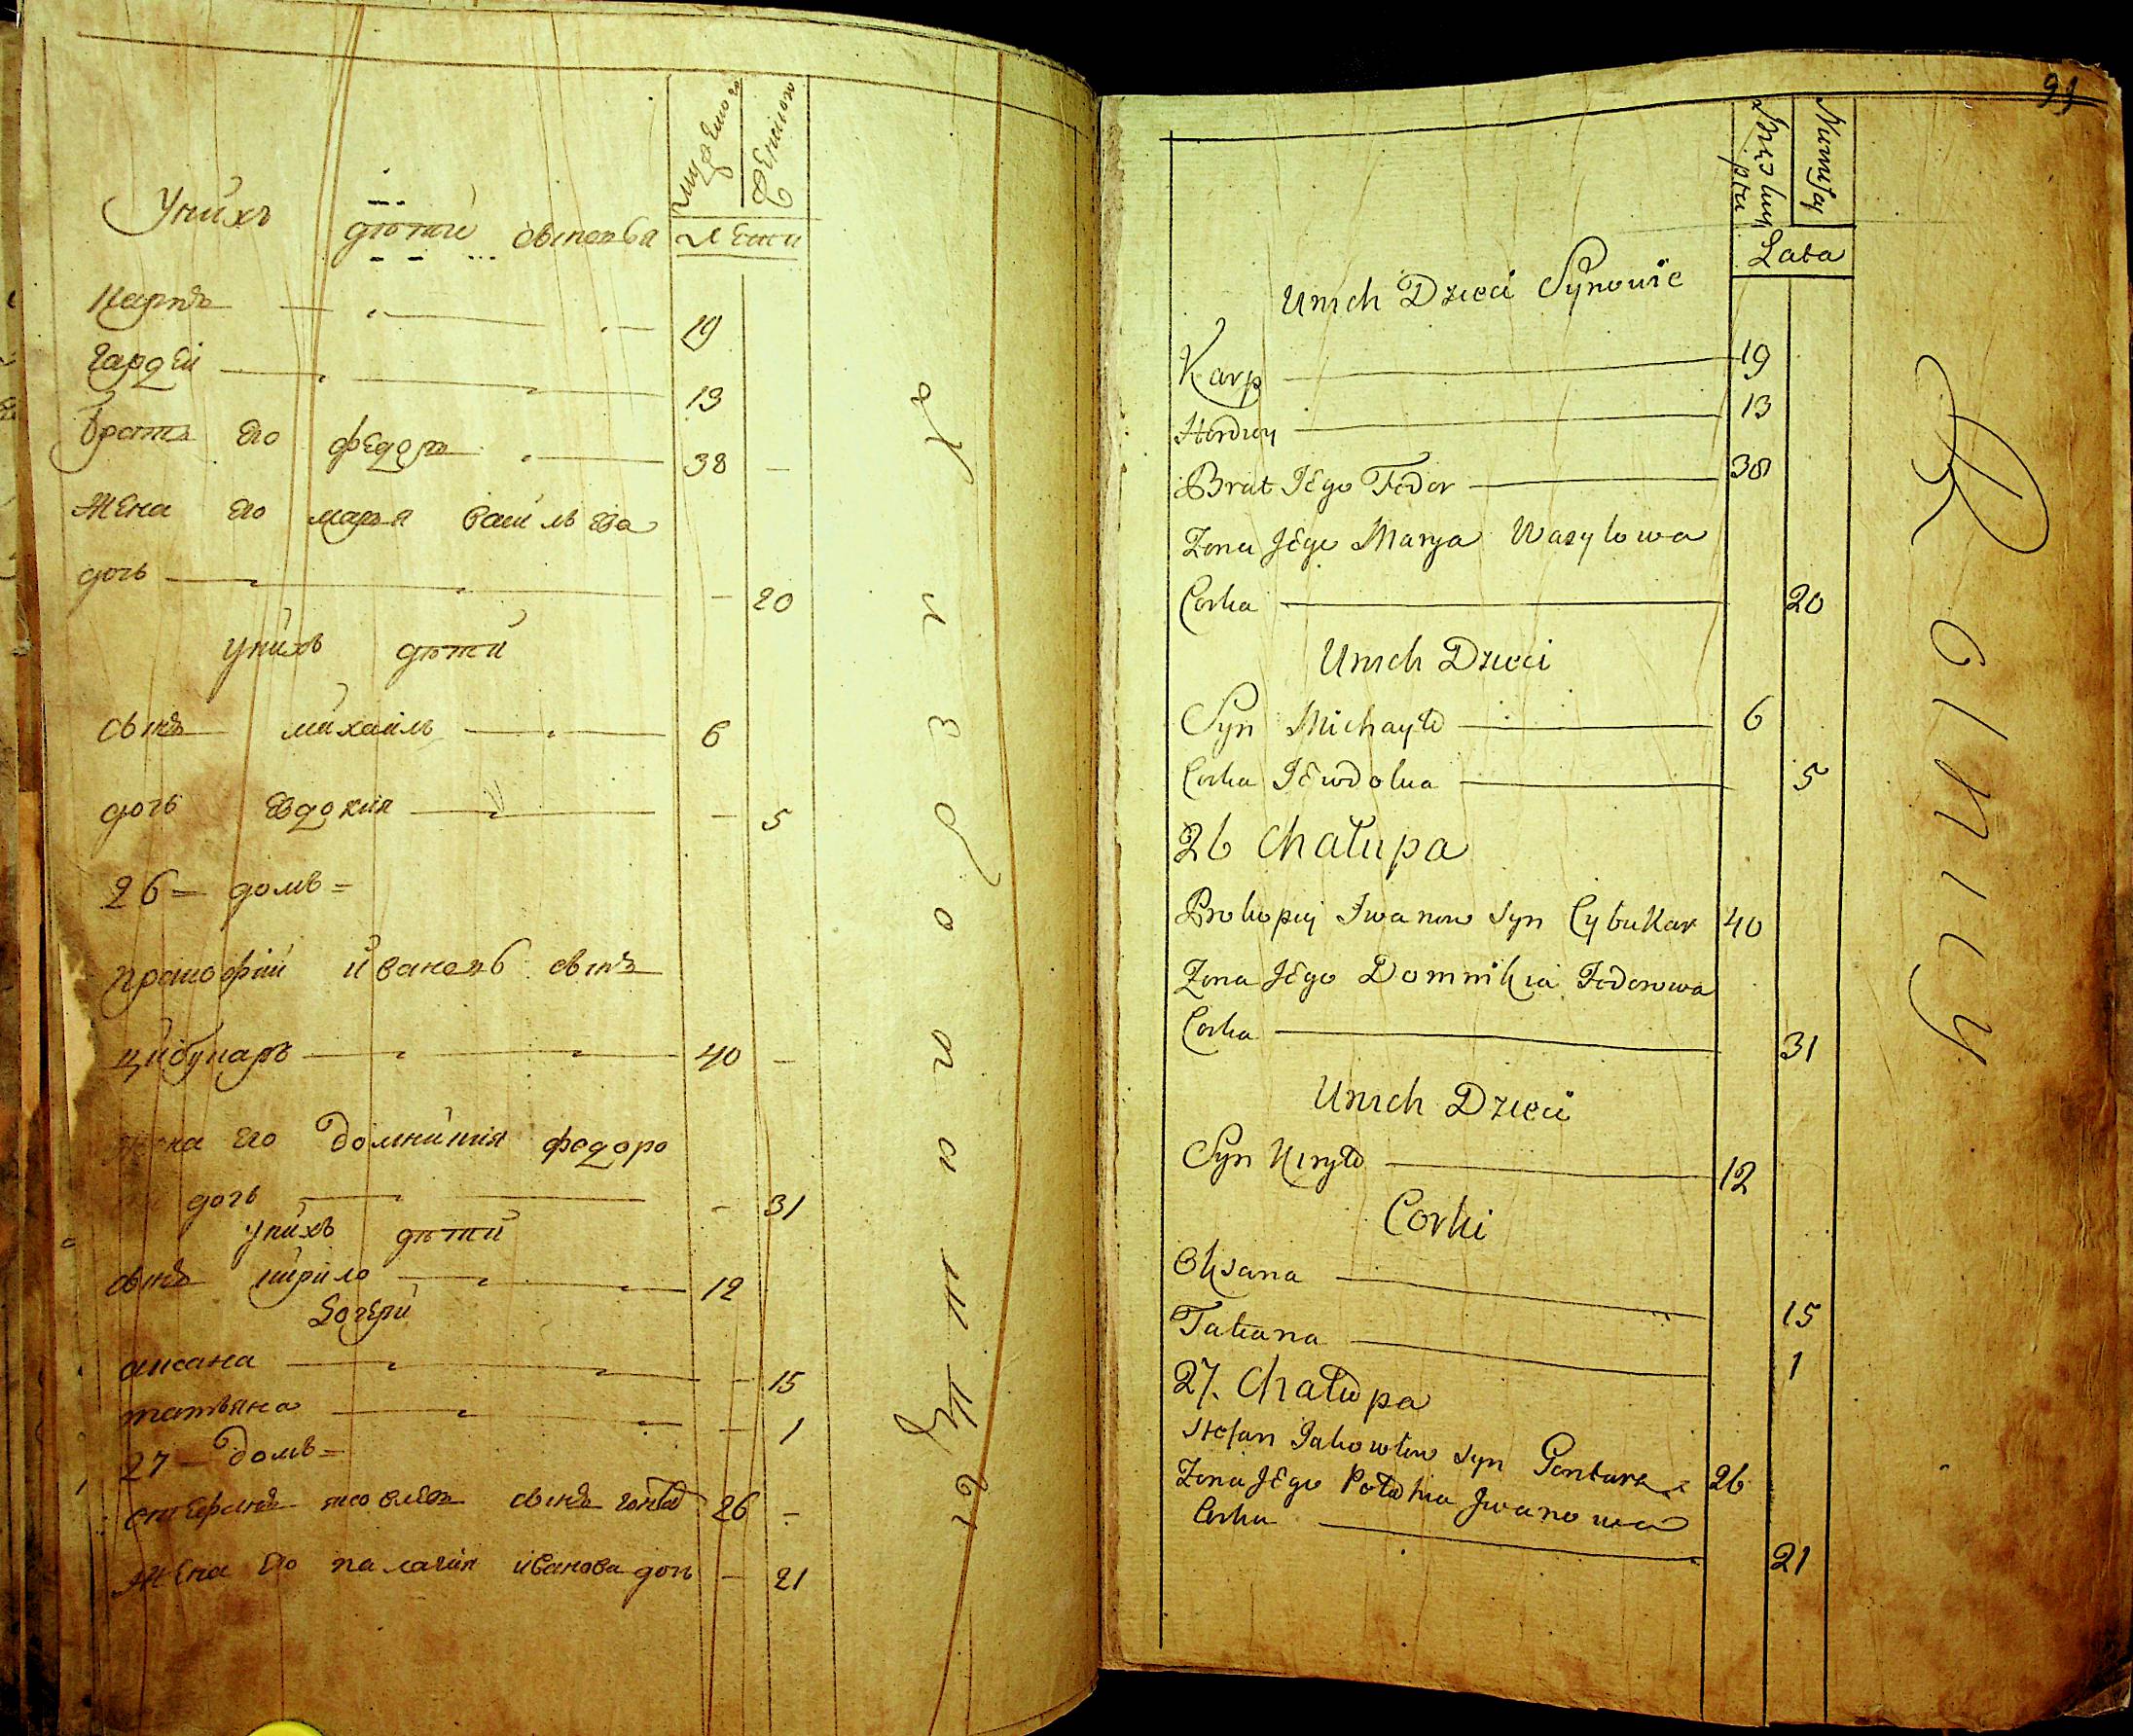 мужеска
женска
Лета
Унихъ дѣтй сыновья
Карпъ 19
Гардей 13
Братъ его федоръ 38 –
Жена его марья васильева
дочь – 20
унихъ дѣтй
сынъ михайлъ 6
дочь Евдокия – 5
26 = домъ =
Пракофий Ивановъ сынъ
цибулкаръ 40 –
жена его Домникия федоро
дочь – 31
унихъ дѣтй
сынъ кирило 12
Дочери
аксана – 15
татьяна – 1
27 – домъ =
стефанъ яковлевъ сынъ 26 –
Жена его палагия иванова дочь – 21
99
Męzczyz
Lata
Unich Dzieci Synowie
Karp 19
Hordiey 13
Brat Jego Fedor 38
Zona Jego Marya Wasylowa
Corka 20
Unich Dzieci
Syn Michayło 6
Corka Jewdokia 5
26 Chałupa
Prokopiy Iwanow Syn Cybulkar 40
Zona Jego Domnikia Fedorowa
Corka 31
Unich Dzieci
Syn Kiryło 12
Corki
Oksana 15
Tatiana 1
27. Chałupa
Stefan Jakowlow Syn 26
Zona Jego Połahia Iwanowa
Corka 21